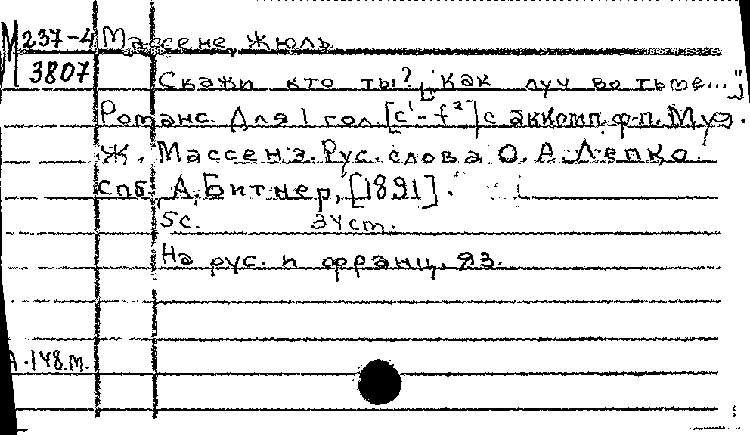 М 237-4 Массене, Жюль
3807 Скажи кто ты? ["Как луч во тьме..."]
Романс. Для 1 гол. [c¹-f²] с аккомп. ф-п. Муз.
Ж. Массенэ. Рус. слова О. А. Лепко.
Спб., А. Битнер, [1891].
5с. 34см.
На рус. и франц. яз.
А-148.м.